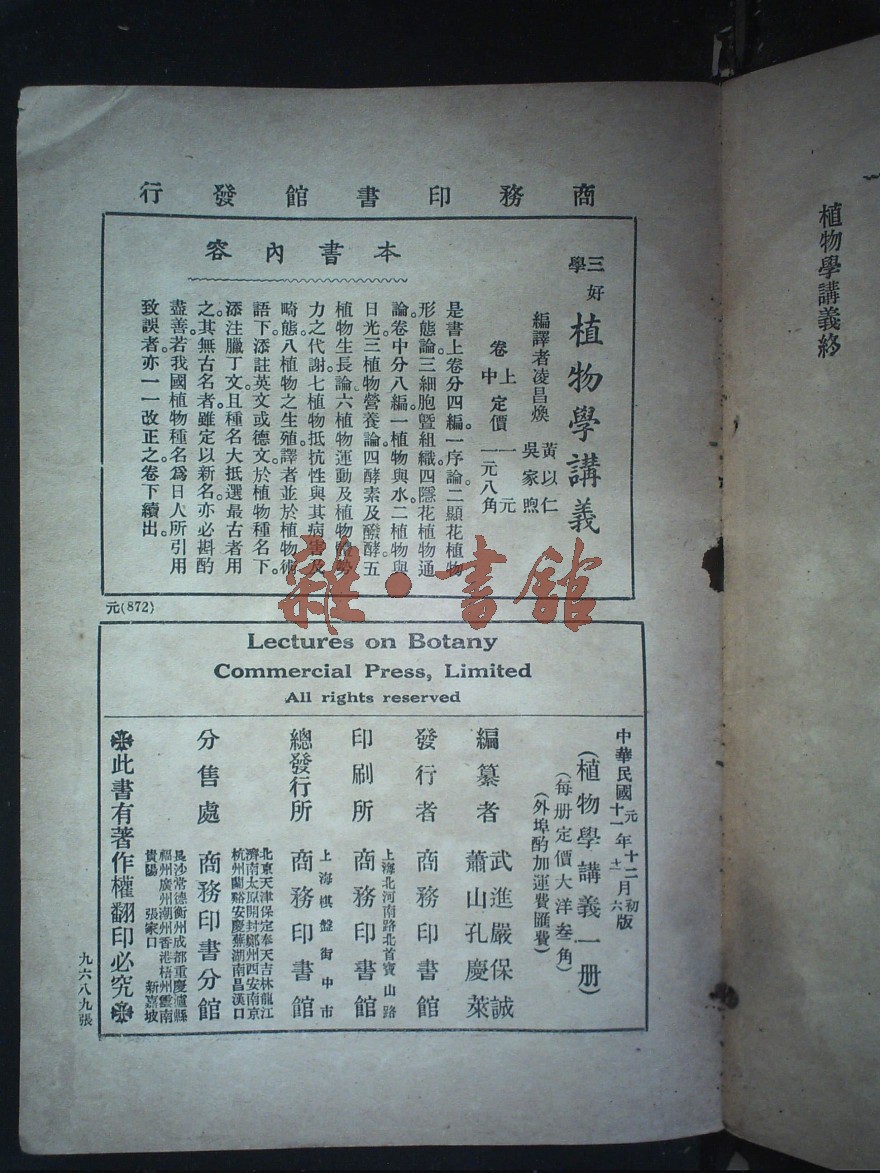 植物學講義終
商務印書館發行
三好
學
植物學講義
編譯者凌昌煥 黃以仁 吳家煦
卷上定價一元
中 一元八角
本書內容
是書上卷分四編。一序論。二顯花植物
形態論。三細胞暨組織。四隱花植物通
論。卷中分八編。一植物與水。二植物與
日光。三植物營養論。四酵素及醱酵。五
植物生長論。六植物運動及植物體勢
力之代謝。七植物抵抗性與其病害及
畸態。八植物之生殖。譯者並於植物術
語下。添註英文或德文。於植物種名下。
添注臘丁文。且種名大抵選最古者用
之。其無古名者。雖定以新名。亦必斟酌
盡善。若我國植物種名爲日人所引用
致誤者。亦一一改正之。卷下續出。
元(872)
Lectures on Botany
Commercial Press, Limited
All rights reserved
中華民國元年十二月初版
十一 十一 六
(植物學講義一册)
(每册定價大洋叁角)
(外埠酌加運費匯費)
編纂者 武進嚴保誠
蕭山孔慶萊
發行者 商務印書館
印刷所 上海北河南路北首寶山路
商務印書館
總發行所 上海棋盤街中市
商務印書館
分售處 北京天津保定奉天吉林龍江
濟南太原開封鄭州西安南京
杭州蘭谿安慶蕪湖南昌漢口
商務印書分館
長沙常德衡州成都重慶瀘縣
福州廣州潮州香港梧州雲南
貴陽 張家口 新嘉坡
此書有著作權翻印必究
九六八九張
雜·書館